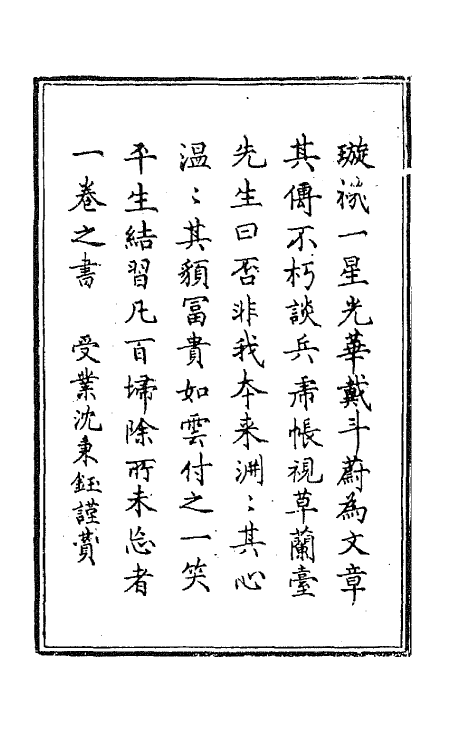 璇璣一星光華戴斗蔚為文章
其傳不朽談兵虎帳視草蘭臺
先生曰否非我本来淵〻其心
温〻其貌冨貴如雲付之一笑
平生結習凡百埽除所未忘者
一卷之書　受業沈秉鈺謹贊